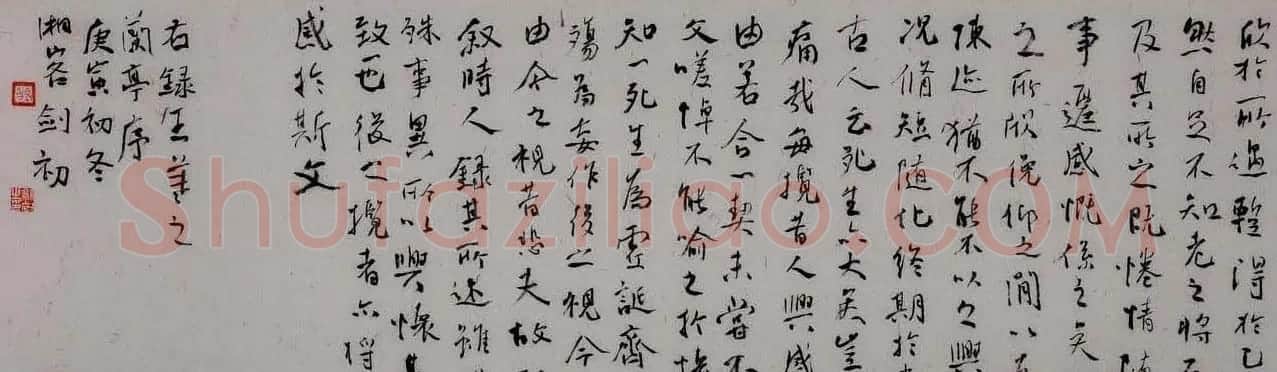 欣於所遇暫得於己
然自足不知老之將至
及其所之既惓情隨
事遷感慨係之矣
之所欣俛仰之間以為
陳迹猶不能不以之興
況脩短隨化終期於
古人云死生亦大矣豈
痛哉每攬昔人興感
由若合一契未嘗不
文嗟悼不能喻之於懷
知一死生為虛誕齊
殤為妄作後之視今
由今之視昔悲夫故
敘時人錄其所述雖
殊事異所以興懷其
致一也後之攬者亦將
感於斯文
右錄王羲之
蘭亭序
庚寅初冬
湘客劍初
Shufaziliao.COM